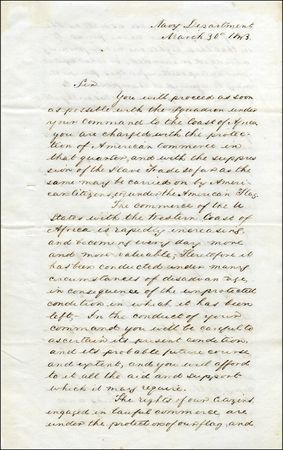 Navy Department
March 30th 1843.
Sir
You will proceed as soon
as possible with the Squadron under
your Command to the Coast of Africa
you are charged with the protec-
tion of American commerce in
that quarter, and with the suppres-
sion of the Slave Trade so far as the
same may be carried on by Ameri-
can Citizens, or under the American Flag.
The commerce of the U
States with the Western Coast of
Africa is rapidly increasing,
and becoming every day more
and more valuable; Heretofore it
has been conducted under many
circumstances of disadvantage,
in consequence of the unprotected
condition in what it has been
left. In the conduct of your
command you will be careful to
ascertain its present condition,
and its probable future course
and extent, and you will afford
to it all the aid and support
which it may require.
The rights of our Citizens
engaged in lawful commerce are
under the protection of our flag, and